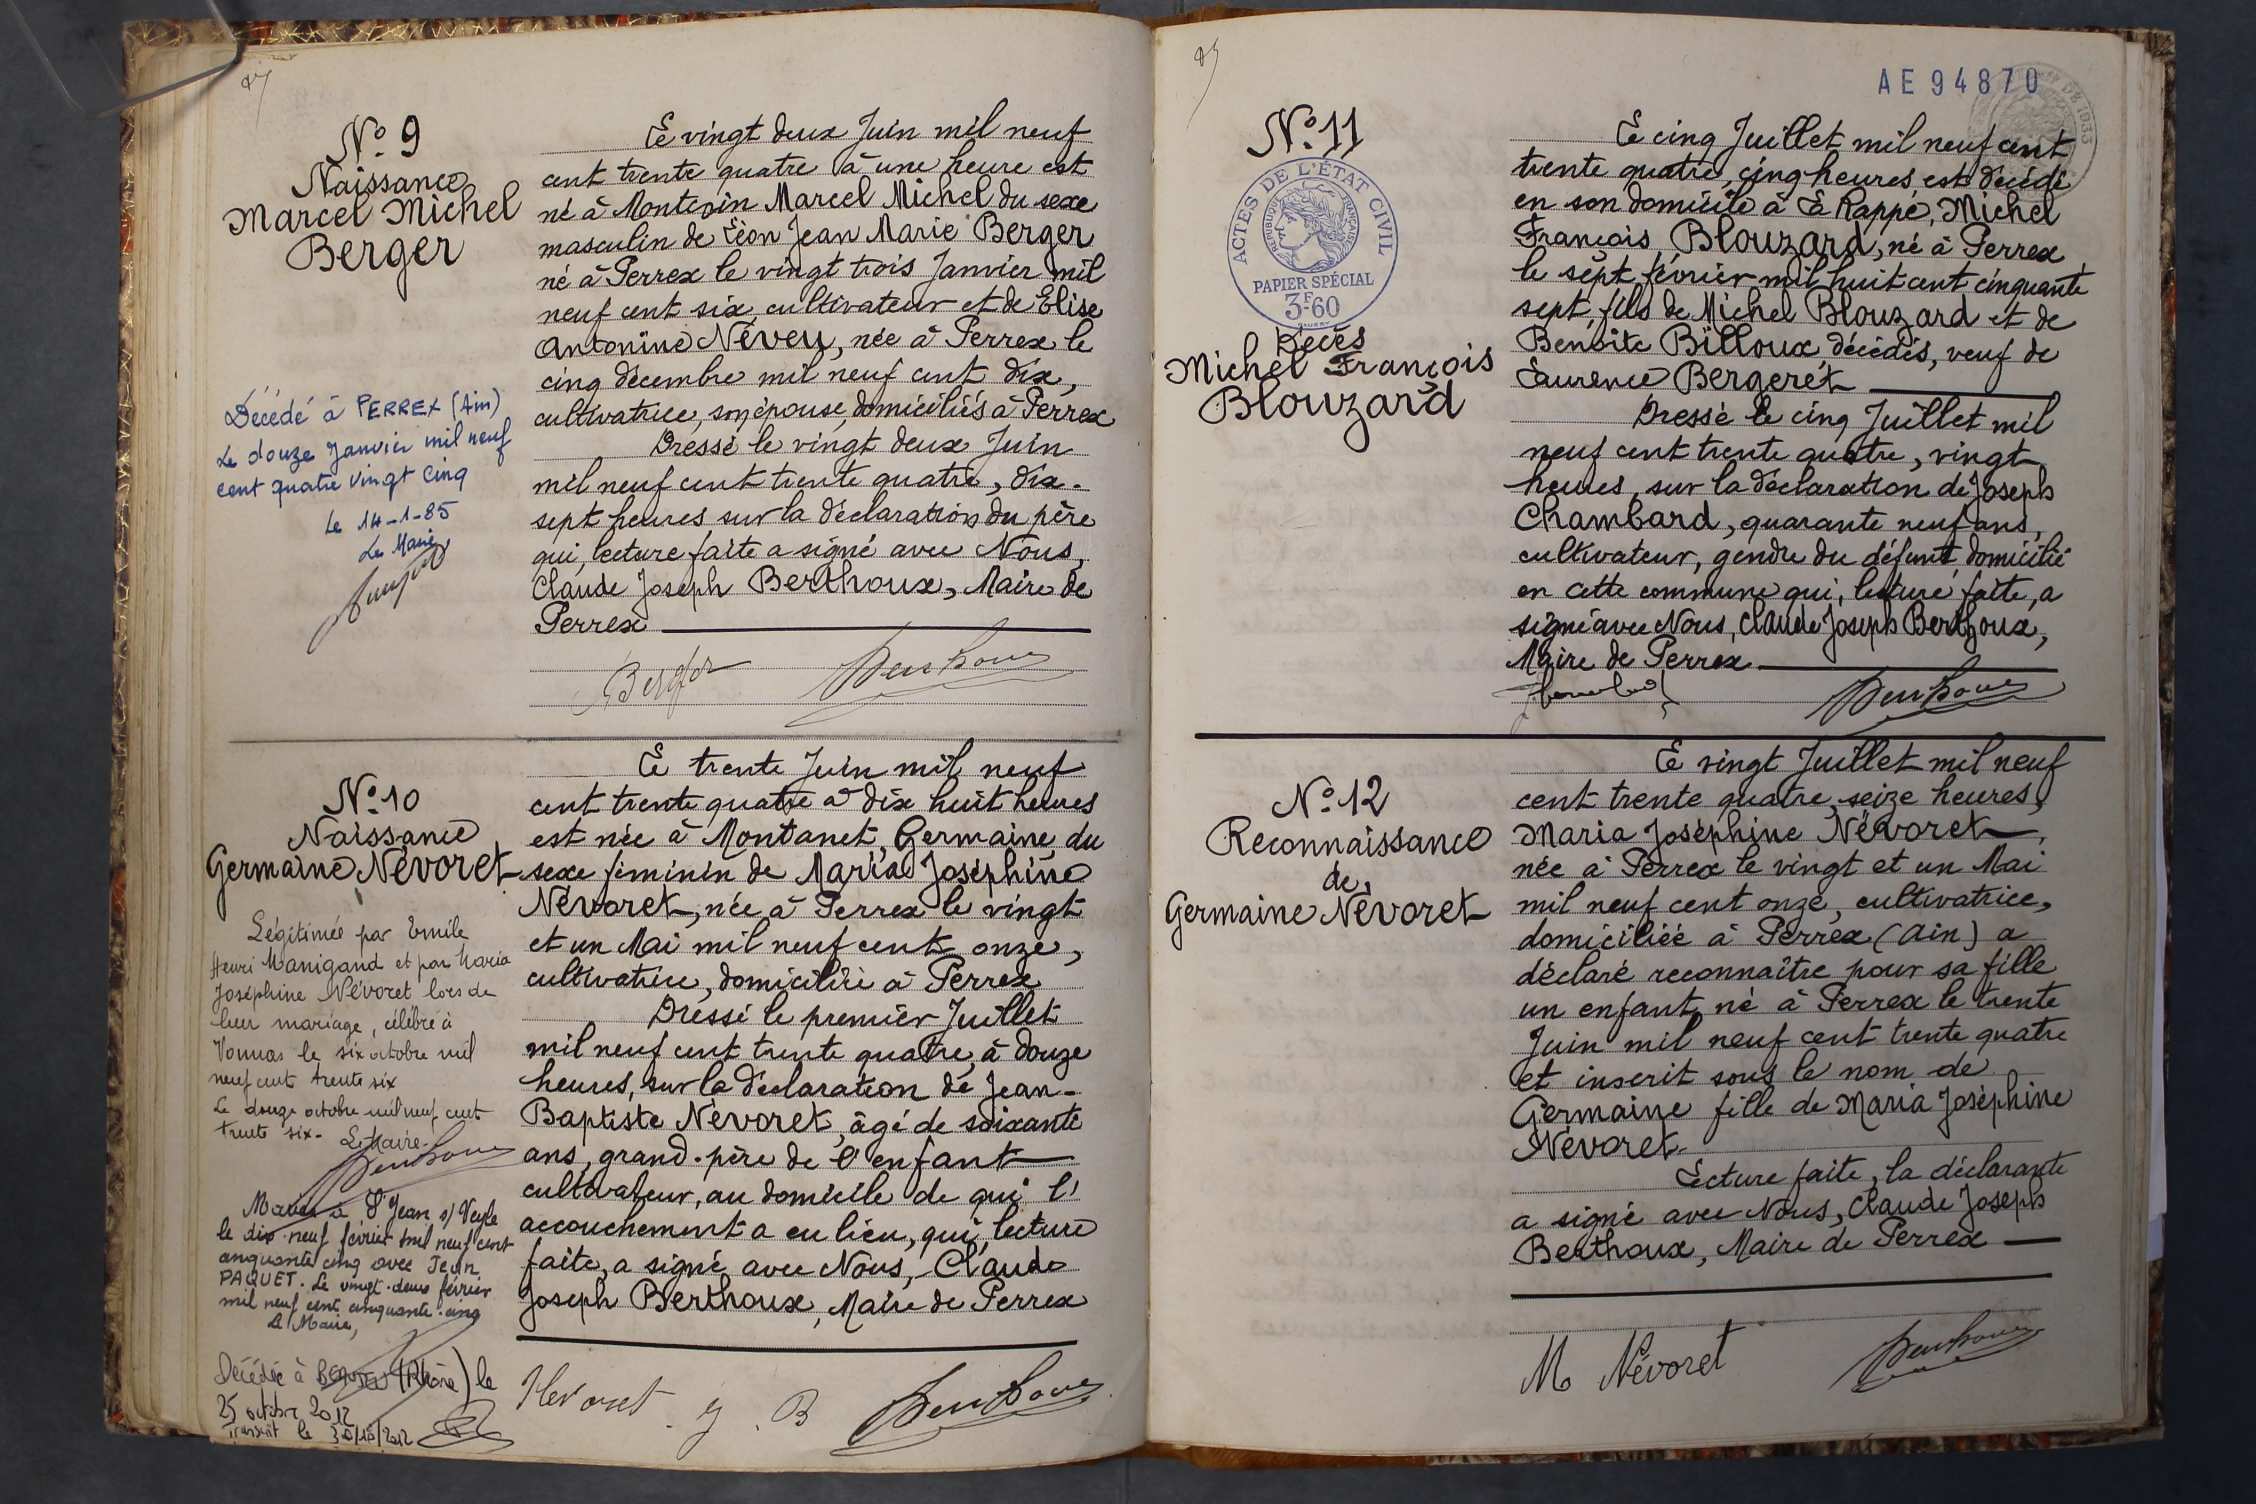 N° 9
Naissance
Marcel Michel
Berger
Le vingt deux Juin mil neuf
cent trente quatre à une heure est
né à Montevin Marcel Michel du sexe
masculin de Léon Jean Marie Berger
né à Perrex le vingt trois Janvier mil
neuf cent six, cultivateur et de Elise
Antonine Néveu, née à Perrex le
cinq décembre mil neuf cent dix,
cultivatrice, son épouse, domiciliés à Perrex
Dressé le vingt deux Juin
mil neuf cent trente quatre, dix-
sept heures sur la déclaration du père
qui, lecture faite a signé avec Nous,
Claude Joseph Berthoux, Maire de
Perrex
Berger
Berthoux
Décédé à PERREX (Ain)
Le douze Janvier mil neuf
cent quatre vingt cinq
Le 14-1-85
Le Maire
N° 10
Naissance
Germaine Névoret
Le trente Juin mil neuf
cent trente quatre à dix huit heures
est née à Montanet, Germaine, du
sexe féminin de Maria Joséphine
Névoret, née à Perrex le vingt
et un Mai mil neuf cent onze,
cultivatrice, domiciliée à Perrex
Dressé le premier Juillet
mil neuf cent trente quatre, à douze
heures, sur la déclaration de Jean-
Baptiste Névoret, âgé de soixante
ans, grand-père de l'enfant
cultivateur, au domicile de qui l'
accouchement a eu lieu, qui, lecture
faite, a signé avec Nous, Claude
Joseph Berthoux, Maire de Perrex
Nevoret J. B
Berthoux
Légitimée par Emile
Henri Manigand et par Maria
Joséphine Névoret lors de
leur mariage, célébré à
Vonnas le six octobre mil
neuf cent trente six
Le douze octobre mil neuf cent
trente six- Le Maire-
Berthoux
Mariée à St Jean s/ Veyle
le dix-neuf février mil neuf cent
cinquante cinq avec Jean
PAQUET. Le vingt-deux février
mil neuf cent cinquante-cinq
Le Maire,
Décédée à BEAUJEU (Rhône) le
25 octobre 2012
Transcrit le 30/10/2012
AE 94870
N° 11
ACTES DE L'ÉTAT CIVIL
RÉPUBLIQUE FRANÇAISE
PAPIER SPÉCIAL
3F-60
Décès
Michel François
Blouzard
Le cinq Juillet mil neuf cent
trente quatre, cinq heures, est décédé
en son domicile à La Rappe, Michel
François Blouzard, né à Perrex
le sept février mil huit cent cinquante
sept, fils de Michel Blouzard et de
Benoite Billoux, décédés, veuf de
Laurence Bergeret
Dressé le cinq Juillet mil
neuf cent trente quatre, vingt
heures, sur la déclaration de Joseph
Chambard, quarante neuf ans,
cultivateur, gendre du défunt domicilié
en cette commune qui, lecture faite, a
signé avec Nous, Claude Joseph Berthoux,
Maire de Perrex
Berthoux
N° 12
Reconnaissance
de
Germaine Névoret
Le vingt Juillet mil neuf
cent trente quatre, seize heures,
Maria Joséphine Névoret,
née à Perrex le vingt et un Mai
mil neuf cent onze, cultivatrice,
domiciliée à Perrex (Ain) a
déclaré reconnaître pour sa fille
un enfant né à Perrex le trente
Juin mil neuf cent trente quatre
et inscrit sous le nom de
Germaine fille de Maria Joséphine
Névoret.
Lecture faite, la déclarante
a signé avec Nous, Claude Joseph
Berthoux, Maire de Perrex
M Névoret
Berthoux